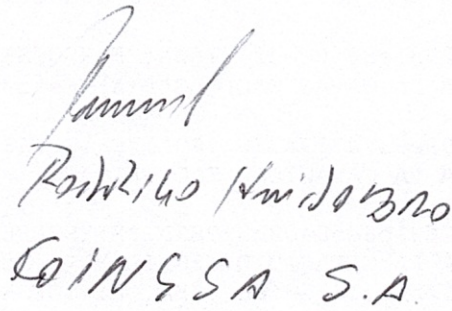 Rodrigo Huidobro
COINGSA S.A.